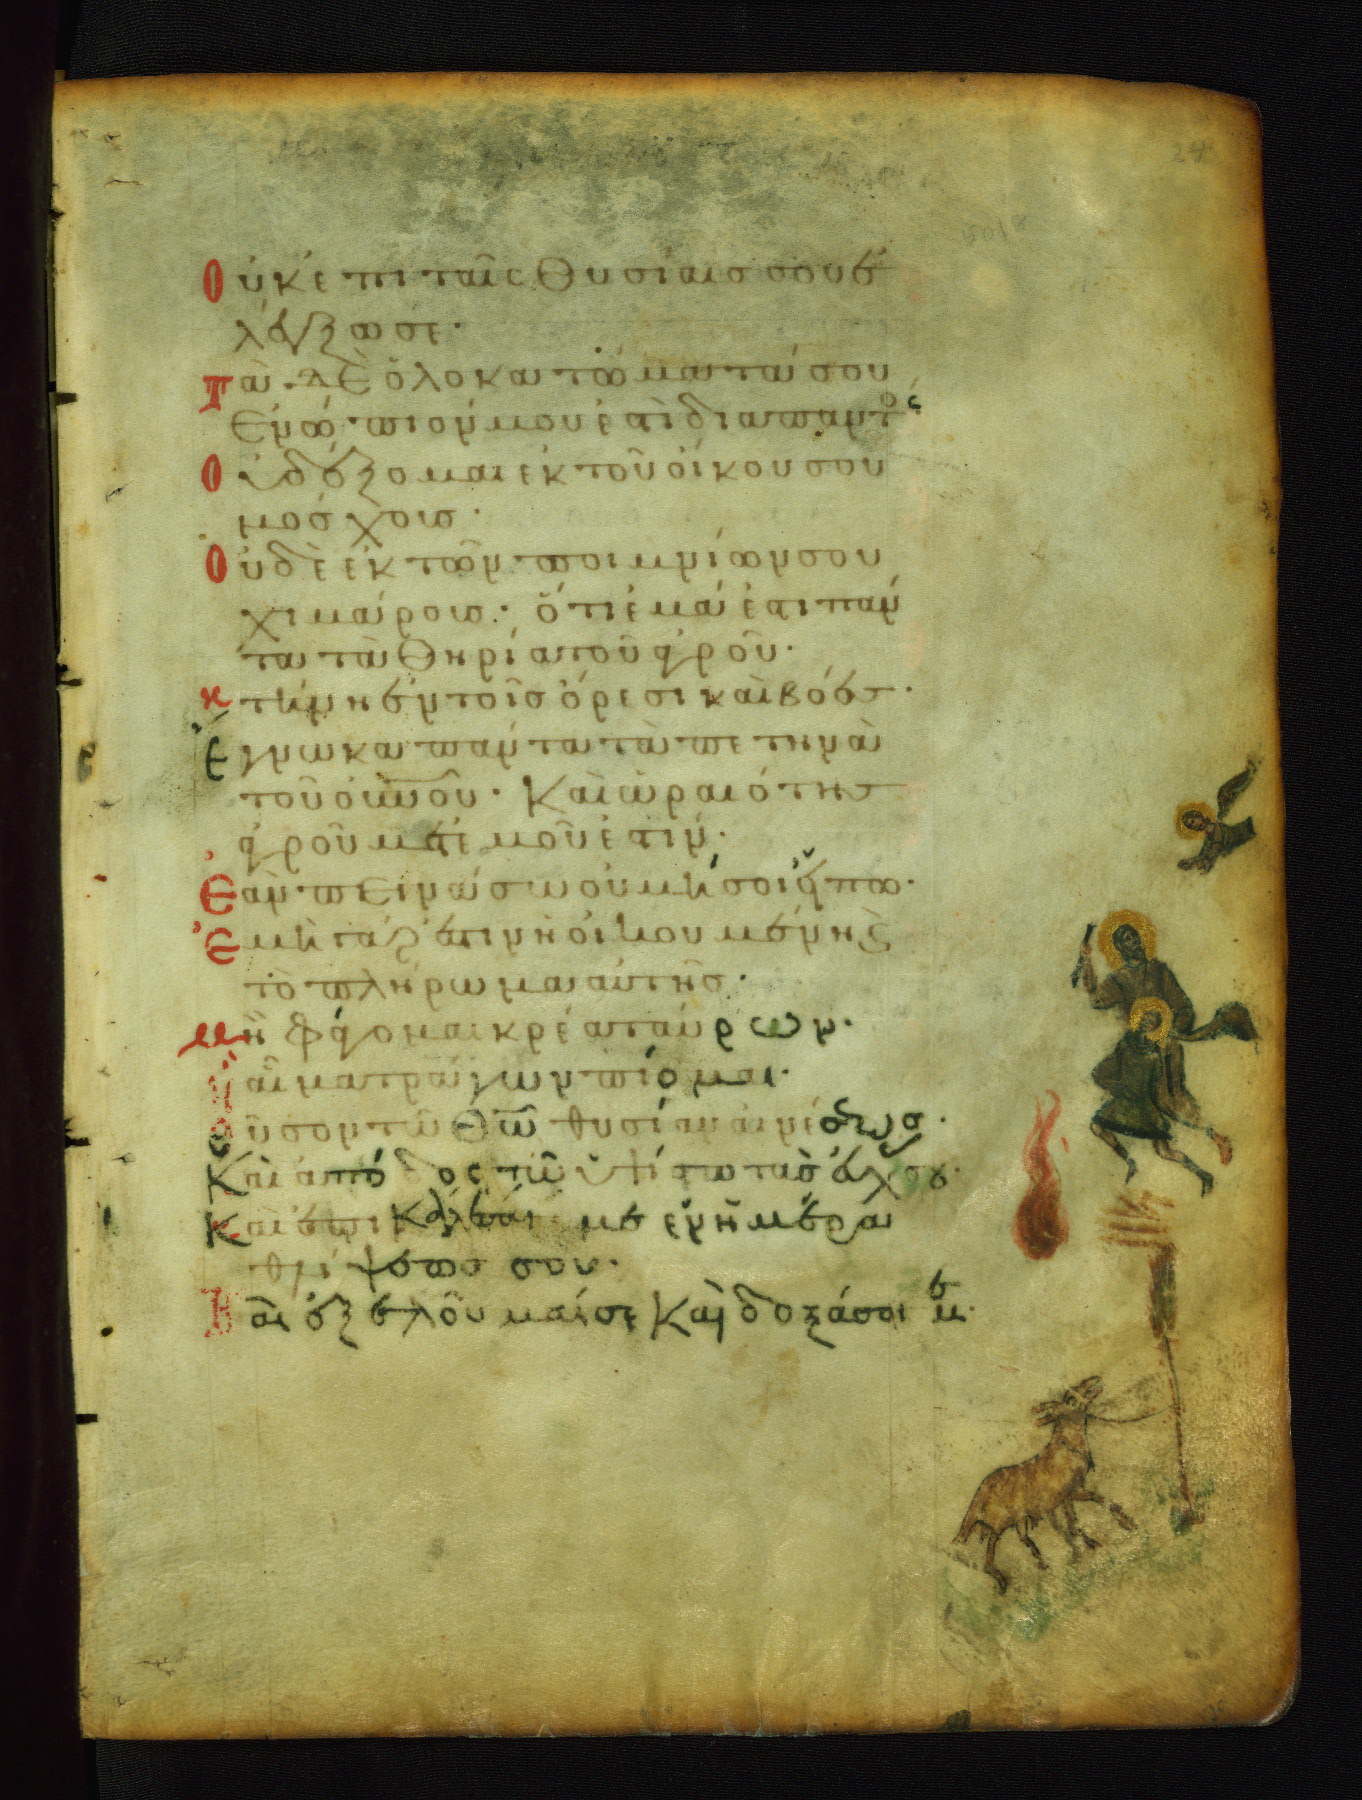 24
Οὐκ ἐπὶ ταῖς θυσίαις σου ἐ
λέγξω σε·
τὰ δὲ ὁλοκαυτώματά σου
ἐνώπιόν μου ἐστὶ διαπαντός
Οὐ δέξομαι ἐκ τοῦ οἴκου σου
μόσχους·
Οὐδὲ ἐκ τῶν ποιμνίων σου
χιμάρους· ὅτι ἐμά ἐστι πάν
τα τὰ θηρία τοῦ ἀγροῦ·
κτήνη ἐν τοῖς ὄρεσι καὶ βόες·
Ἔγνωκα πάντα τὰ πετηνὰ
τοῦ οὐνοῦ· Καὶ ὡραιότης
ἀγροῦ μετ' ἐμοῦ ἐστιν·
Ἐὰν πεινάσω οὐ μή σοι εἴπω·
Ἐμὴ γάρ ἐστιν ἡ οἰκουμένη καὶ
τὸ πλήρωμα αὐτῆς·
μὴ φάγομαι κρέα ταύρων·
ἢ αἷμα τράγων πίομαι·
Θῦσον τῶ Θῶ θυσίαν αἰνέσεως·
Καὶ ἀπόδος τῶ ὑψίστω τὰς εὐχάς σου·
Καὶ ἐπικάλεσαί με ἐν ἡμέρα
θλίψεως σου·
Καὶ ἐξελοῦμαί σε Καὶ δοξάσει με·